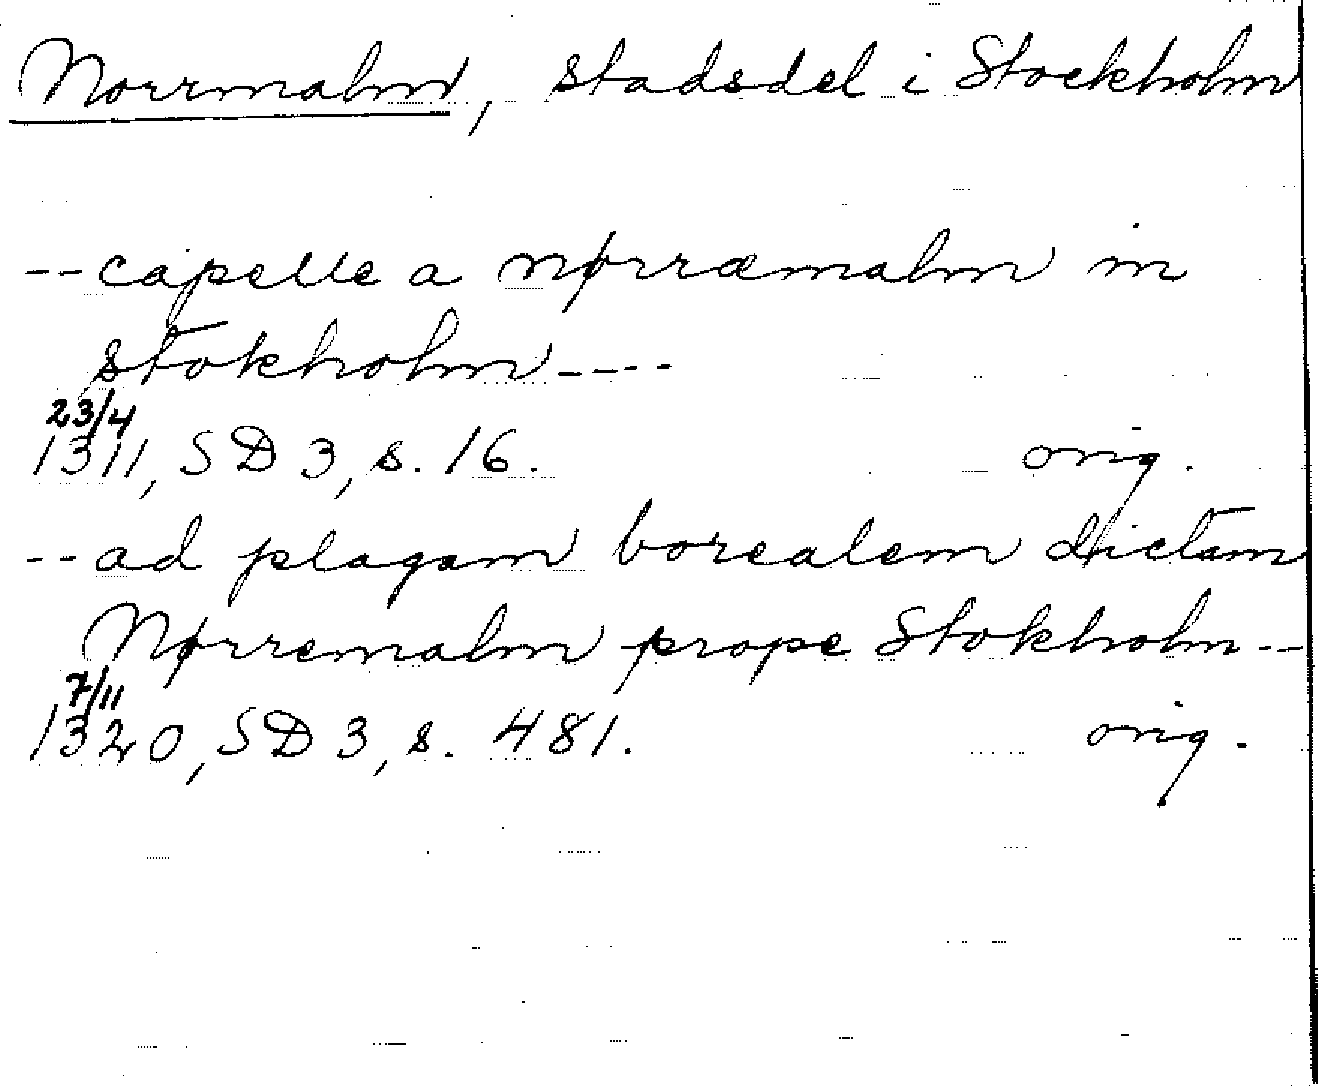 Norrmalm, stadsdel i Stockholm
--capelle a nørræmalm in
stokholm----
23/4
1311, SD 3, s. 16. orig.
--ad plagam borealem dictam
Nørremalm prope Stokholm--
7/11
1320, SD 3, s. 481. orig.